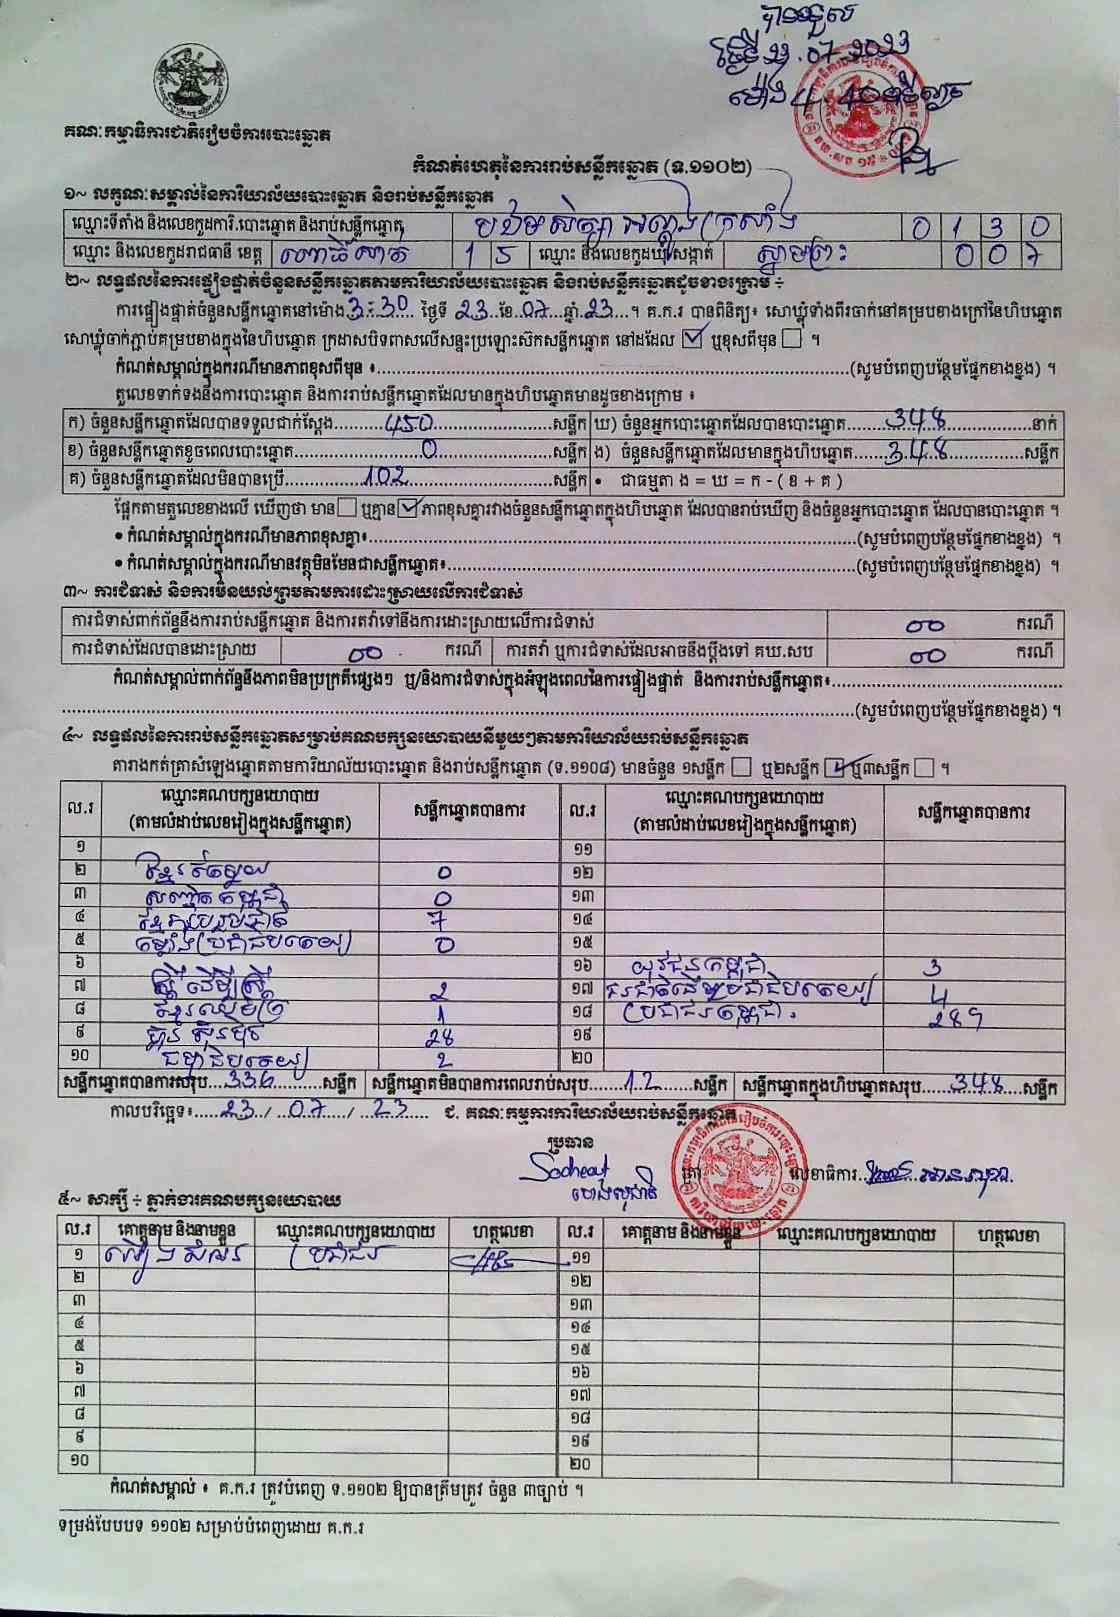 បានទទួល
ថ្ងៃទី 23.07.2023
ម៉ោង 4 40 នាទីល្ងាច
គណៈកម្មាធិការជាតិរៀបចំការបោះឆ្នោត
កំណត់ហេតុនៃការរាប់សន្លឹកឆ្នោត (ទ.១១០២)
១~ លក្ខណៈសម្គាល់នៃការិយាល័យបោះឆ្នោត និងរាប់សន្លឹកឆ្នោត
ឈ្មោះទីតាំង និងលេខកូដការិ.បោះឆ្នោត និងរាប់សន្លឹកឆ្នោត បឋមសិក្សា អណ្តូងក្រសាំង 0 1 3 0
ឈ្មោះ និងលេខកូដរាជធានី ខេត្ត ពោធិ៍សាត់ 1 5 ឈ្មោះ និងលេខកូដឃុំ/សង្កាត់ ស្នាមព្រះ 0 0 7
២~ លទ្ធផលនៃការផ្ទៀងផ្ទាត់ចំនួនសន្លឹកឆ្នោតតាមការិយាល័យបោះឆ្នោត និងរាប់សន្លឹកឆ្នោតដូចខាងក្រោម ÷
ការផ្ទៀងផ្ទាត់ចំនួនសន្លឹកឆ្នោតនៅម៉ោង 3:30 ថ្ងៃទី 23 ខែ 07 ឆ្នាំ 23 ។ គ.ក.រ បានពិនិត្យ៖ សោឃ្លុំទាំងពីរចាក់នៅគម្របខាងក្រៅនៃហិបឆ្នោត
សោឃ្លុំចាក់ភ្ជាប់គម្របខាងក្នុងនៃហិបឆ្នោត ក្រដាសបិទពាសលើសន្ទះប្រឡោះស៊កសន្លឹកឆ្នោត នៅដដែល ☑ ឬខុសពីមុន ☐ ។
កំណត់សម្គាល់ក្នុងករណីមានភាពខុសពីមុន ៖ (សូមបំពេញបន្ថែមផ្នែកខាងខ្នង) ។
តួលេខទាក់ទងនឹងការបោះឆ្នោត និងការរាប់សន្លឹកឆ្នោតដែលមានក្នុងហិបឆ្នោតមានដូចខាងក្រោម ៖
ក) ចំនួនសន្លឹកឆ្នោតដែលបានទទួលជាក់ស្តែង 450 សន្លឹក ឃ) ចំនួនអ្នកបោះឆ្នោតដែលបានបោះឆ្នោត 348 នាក់
ខ) ចំនួនសន្លឹកឆ្នោតខូចពេលបោះឆ្នោត 0 សន្លឹក ង) ចំនួនសន្លឹកឆ្នោតដែលមានក្នុងហិបឆ្នោត 348 សន្លឹក
គ) ចំនួនសន្លឹកឆ្នោតដែលមិនបានប្រើ 102 សន្លឹក • ជាធម្មតា ង = ឃ = ក - ( ខ + គ )
ផ្អែកតាមតួលេខខាងលើ ឃើញថា មាន ☐ ឬគ្មាន ☑ ភាពខុសគ្នារវាងចំនួនសន្លឹកឆ្នោតក្នុងហិបឆ្នោត ដែលបានរាប់ឃើញ និងចំនួនអ្នកបោះឆ្នោត ដែលបានបោះឆ្នោត ។
• កំណត់សម្គាល់ក្នុងករណីមានភាពខុសគ្នា៖ (សូមបំពេញបន្ថែមផ្នែកខាងខ្នង) ។
• កំណត់សម្គាល់ក្នុងករណីមានវត្ថុមិនមែនជាសន្លឹកឆ្នោត៖ (សូមបំពេញបន្ថែមផ្នែកខាងខ្នង) ។
៣~ ការជំទាស់ និងការមិនយល់ព្រមតាមការដោះស្រាយលើការជំទាស់
ការជំទាស់ពាក់ព័ន្ធនឹងការរាប់សន្លឹកឆ្នោត និងការតវ៉ាទៅនឹងការដោះស្រាយលើការជំទាស់ 00 ករណី
ការជំទាស់ដែលបានដោះស្រាយ 00 ករណី ការតវ៉ា ឬការជំទាស់ដែលអាចនឹងប្តឹងទៅ គឃ.សប 00 ករណី
កំណត់សម្គាល់ពាក់ព័ន្ធនឹងភាពមិនប្រក្រតីផ្សេងៗ ឬ/និងការជំទាស់ក្នុងអំឡុងពេលនៃការផ្ទៀងផ្ទាត់ និងការរាប់សន្លឹកឆ្នោត៖
(សូមបំពេញបន្ថែមផ្នែកខាងខ្នង) ។
៤~ លទ្ធផលនៃការរាប់សន្លឹកឆ្នោតសម្រាប់គណបក្សនយោបាយនីមួយៗតាមការិយាល័យរាប់សន្លឹកឆ្នោត
តារាងកត់ត្រាសំឡេងឆ្នោតតាមការិយាល័យបោះឆ្នោត និងរាប់សន្លឹកឆ្នោត (ទ.១១០៨) មានចំនួន ១សន្លឹក ☐ ឬ២សន្លឹក ☑ ឬ៣សន្លឹក ☐ ។
ល.រ ឈ្មោះគណបក្សនយោបាយ (តាមលំដាប់លេខរៀងក្នុងសន្លឹកឆ្នោត) សន្លឹកឆ្នោតបានការ ល.រ ឈ្មោះគណបក្សនយោបាយ (តាមលំដាប់លេខរៀងក្នុងសន្លឹកឆ្នោត) សន្លឹកឆ្នោតបានការ
១ ១១
២ ខ្មែរតែមួយ 0 ១២
៣ សញ្ជាតិកម្ពុជា 0 ១៣
៤ ខ្មែររួបរួមជាតិ 7 ១៤
៥ កម្លាំងប្រជាធិបតេយ្យ 0 ១៥
៦ ១៦ យុវជនកម្ពុជា 3
៧ ស្ត្រីដើម្បីស្ត្រី 2 ១៧ ជនជាតិដើមប្រជាធិបតេយ្យ 4
៨ 1 ១៨ ប្រជាជនកម្ពុជា 289
៩ ហ្វ៊ុនស៊ិនប៉ិច 28 ១៩
១០ ធម្មាធិបតេយ្យ 2 ២០
សន្លឹកឆ្នោតបានការសរុប 336 សន្លឹក សន្លឹកឆ្នោតមិនបានការពេលរាប់សរុប 12 សន្លឹក សន្លឹកឆ្នោតក្នុងហិបឆ្នោតសរុប 348 សន្លឹក
កាលបរិច្ឆេទ៖ 23 / 07 / 23 ជ. គណៈកម្មការការិយាល័យរាប់សន្លឹកឆ្នោត
ប្រធាន
Socheat លេខាធិការ
៥~ សាក្សី ÷ ភ្នាក់ងារគណបក្សនយោបាយ
ល.រ គោត្តនាម និងនាមខ្លួន ឈ្មោះគណបក្សនយោបាយ ហត្ថលេខា ល.រ គោត្តនាម និងនាមខ្លួន ឈ្មោះគណបក្សនយោបាយ ហត្ថលេខា
១ ប្រជាជន ១១
២ ១២
៣ ១៣
៤ ១៤
៥ ១៥
៦ ១៦
៧ ១៧
៨ ១៨
៩ ១៩
១០ ២០
កំណត់សម្គាល់ ៖ គ.ក.រ ត្រូវបំពេញ ទ.១១០២ ឱ្យបានត្រឹមត្រូវ ចំនួន ៣ច្បាប់ ។
ទម្រង់បែបបទ ១១០២ សម្រាប់បំពេញដោយ គ.ក.រ